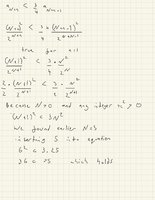 a_{N+1} ≤ 3/4 a_{N+1-1}
(N+1)²/2^{N+1} ≤ 3/4 · (N+1-1)²/2^{N+1-1}
true for n+1
(N+1)²/2^{N+1} ≤ 3/4 · N²/2^N
2/2 · (N+1)²/2^{N+1} ≤ 3/2 · N²/2^{N+1}
because N>0 and any integer x² > 0
(N+1)² ≤ 3N²
We found earlier N=5
inserting 5 into equation
6² ≤ 3.25
36 ≤ 75 which holds